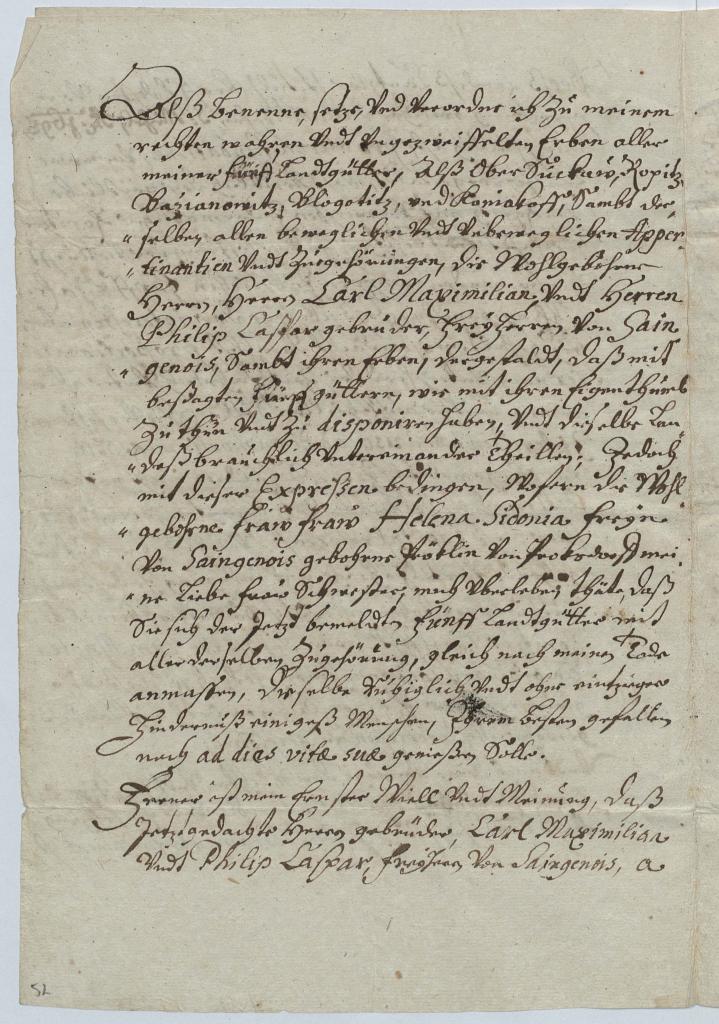 Alß benenne, setze, Und Verordne ich Zu meinem
rechten wahren Undt Ungezweiffelten Erben aller
meiner fünff Landtgütter, Alß Ober Suckaw, Ropitz,
Bazianowitz, Blogotitz, und Koniakoff, Sambt der
selben allen beweglichen Undt Unbeweglichen Apper
tinantien Undt Zuegehörungen, die Wohlgebohrne
Herrn, Herrn Carl Maximilian, Undt Herren
Philip Caspar gebrüder, FreyHerren Von Sain
genois, Sambt ihren Erben, dergestaldt, daß mit
besagten fünff güttern, wie mit ihren Eigenthumb
Zu thun Undt Zu disponiren haben, Undt dieselbe Lan
deßbräuchlich Untereinander Theillen; Jedoch
mit dieser Expressen bedingen, Wofern die Wohl
gebohrne Fraw Fraw Helena Sidonia Freyin
Von Saingenois gebohrne Fröhlin Von mei
ne Liebe Fraw Schwester, mich Uberleben thäte, daß
Sie sich der Jetzt bemeldten Fünff Landtgütter mit
aller derselben Zugehörung, gleich nach meinen Tode
anmassen, dieselbe Ruhiglich Undt ohne eintziges
Hinderniß einigeß Menschen, Ihrem besten gefallen
nach ad dies vitæ suæ geniessen Solle.
Ferner ist mein Ernster Will Undt Meinung, daß
Jetztgedachte Herrn gebrüder, Carl Maximilian
Undt Philip Caspar, FreyHerrn Von Saingenois, a
52